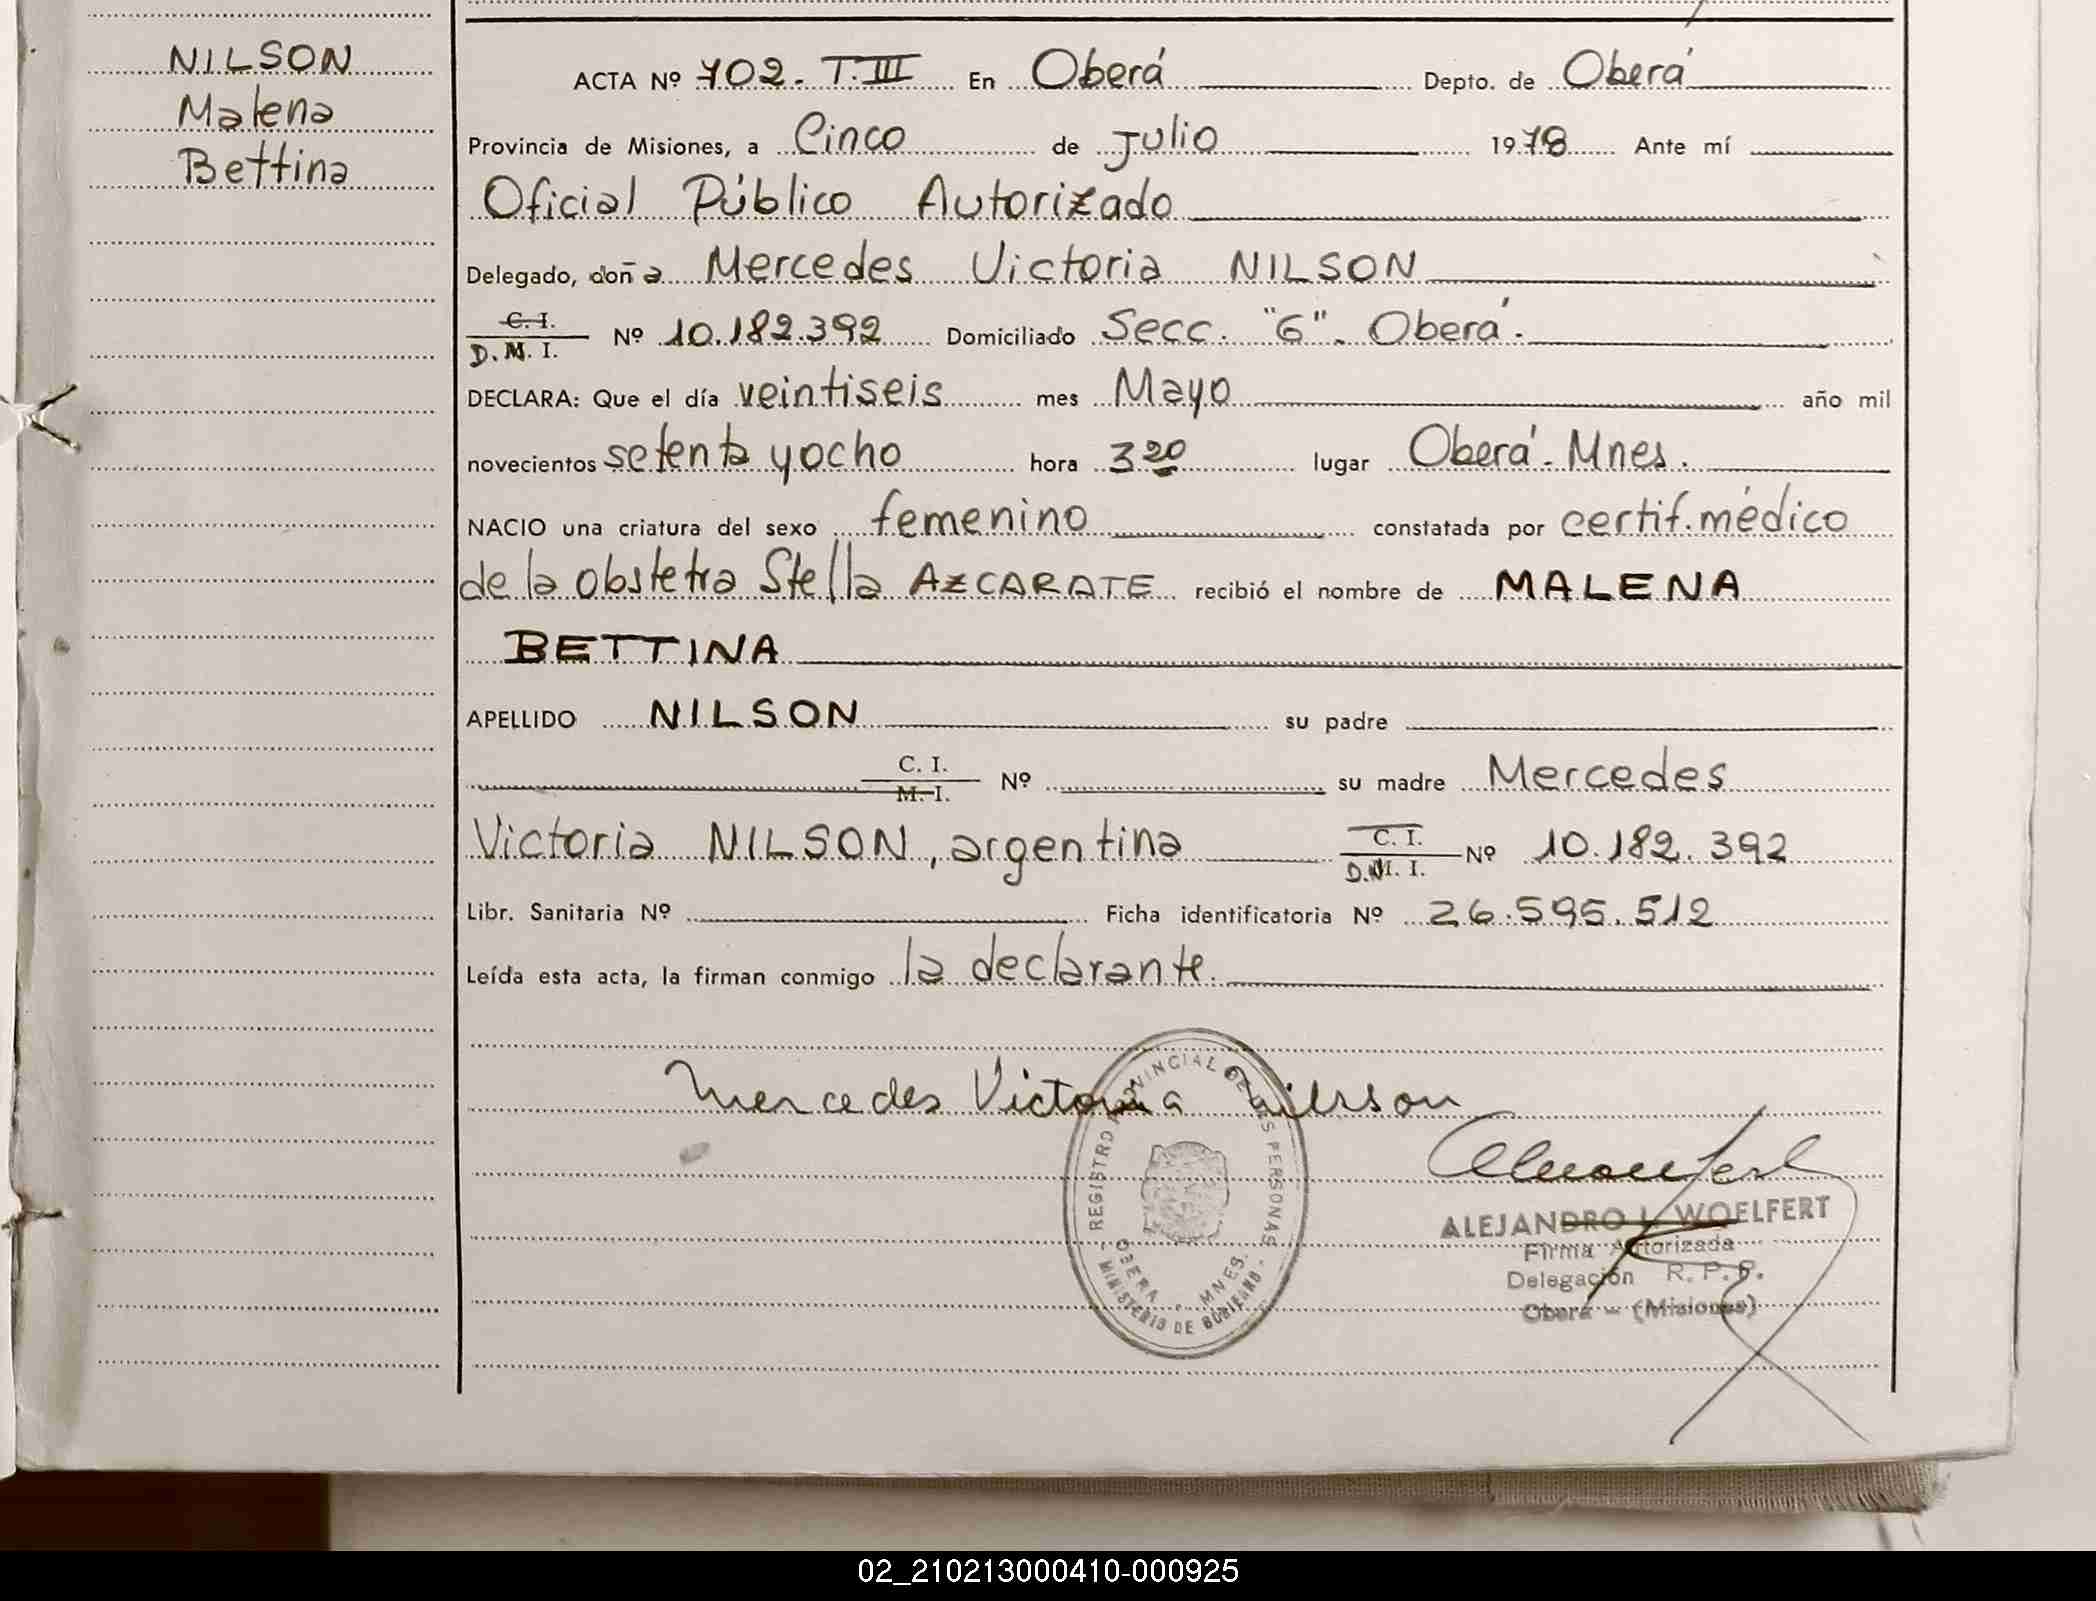 NILSON
Malena
Bettina
ACTA Nº 702. T.III En Oberá Depto. de Oberá
Provincia de Misiones, a Cinco de Julio 1978 Ante mí
Oficial Público Autorizado
Delegado, doña Mercedes Victoria NILSON
C. I.
D. M. I. Nº 10.182.392 Domiciliado Secc. "G". Oberá.
DECLARA: Que el día veintiseis mes Mayo año mil
novecientos setenta y ocho hora 3 20 lugar Oberá. Mnes.
NACIO una criatura del sexo femenino constatada por certif. médico
de la obstetra Stella AZCARATE recibió el nombre de MALENA
BETTINA
APELLIDO NILSON su padre
C. I.
M. I. Nº su madre Mercedes
Victoria NILSON, argentina C. I.
D. M. I. Nº 10.182.392
Libr. Sanitaria Nº Ficha identificatoria Nº 26.595.512
Leída esta acta, la firman conmigo la declarante.
Mercedes Victoria
REGISTRO PROVINCIAL DE LAS PERSONAS
OBERA - MNES.
MINISTERIO DE GOBIERNO
ALEJANDRO L. WOELFERT
Firma Autorizada
Delegación R. P. P.
Oberá - (Misiones)
02_210213000410-000925